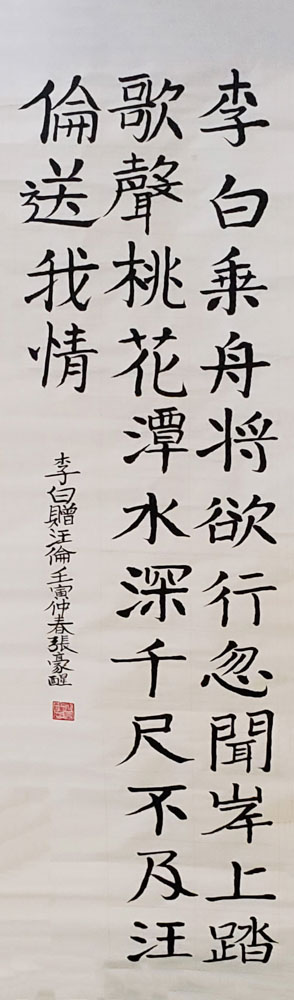 李白乗舟将欲行忽聞岸上踏
歌聲桃花潭水深千尺不及汪
倫送我情
李白贈汪倫壬寅仲春張豪醒